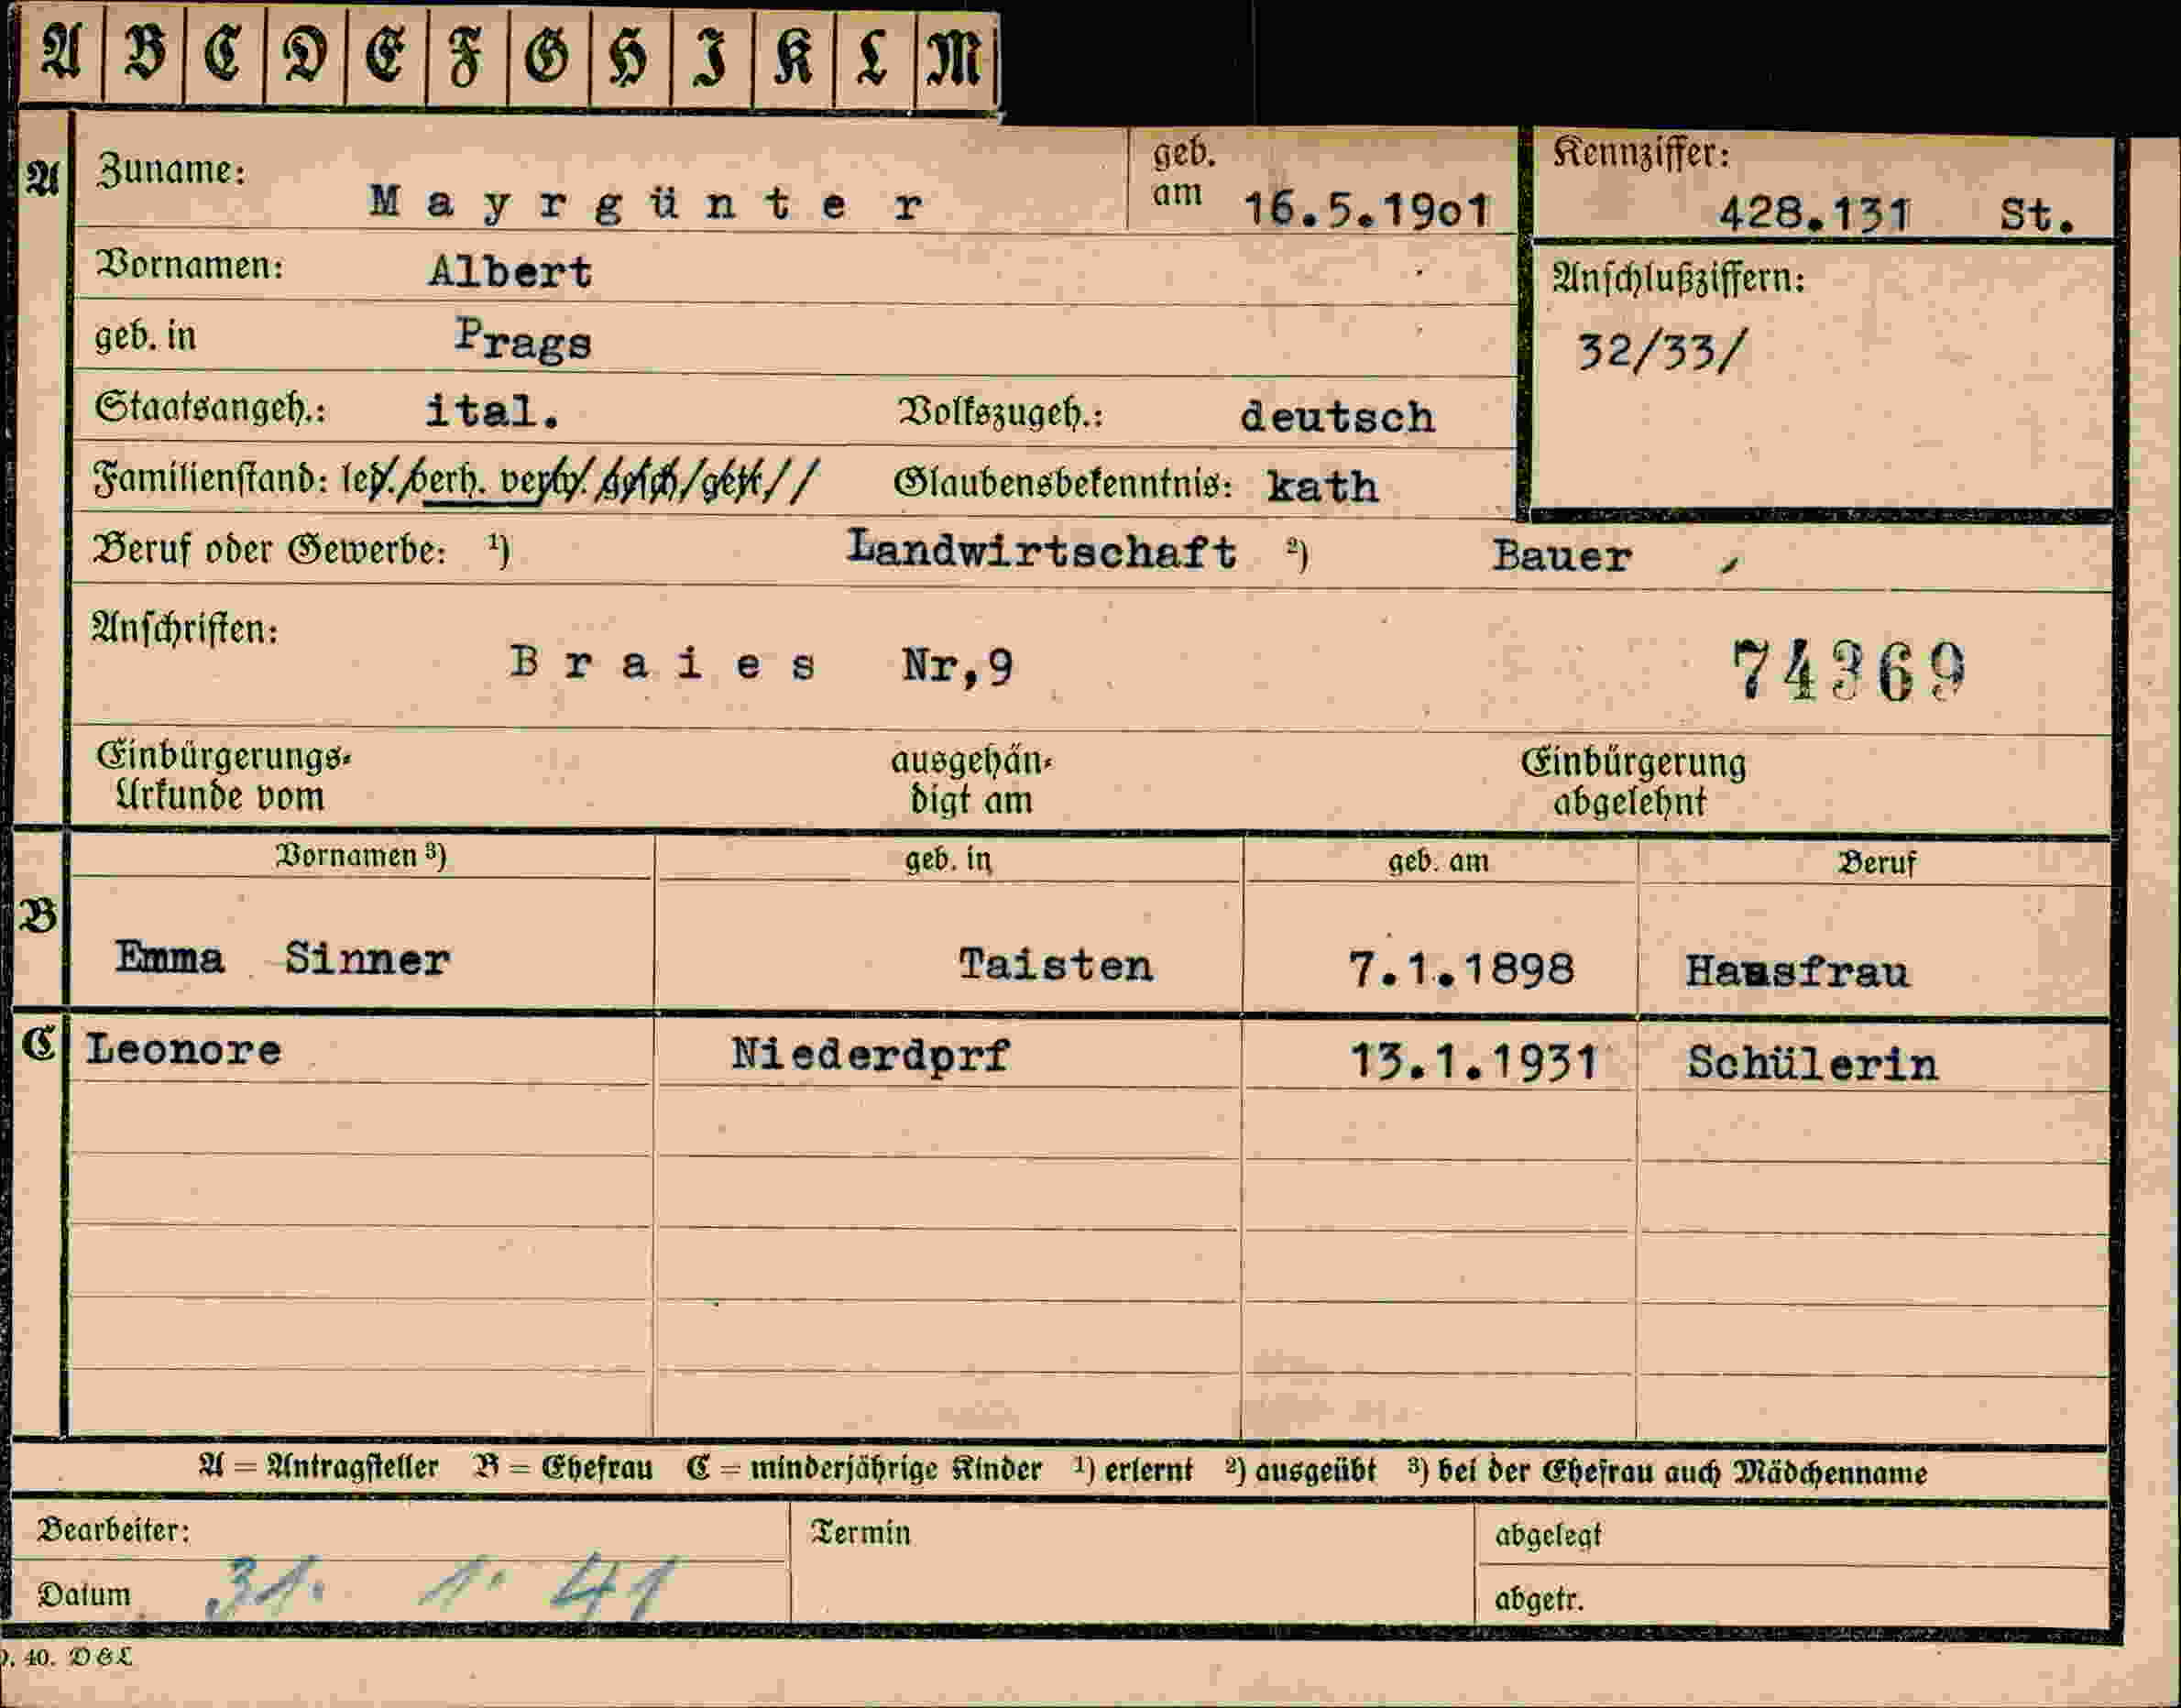 A B C D E F G H I K L M
A Zuname: Mayrgünter geb. am 16.5.19o1 Kennziffer: 428.131 St.
Vornamen: Albert Anschlußziffern:
geb. in Prags 32/33/
Staatsangeh.: ital. Volkszugeh.: deutsch
Familienstand: led./verh. verw./gesch/getr// Glaubensbekenntnis: kath
Beruf oder Gewerbe: ¹) Landwirtschaft ²) Bauer
Anschriften: Braies Nr,9 74369
Einbürgerungs- ausgehän- Einbürgerung
Urkunde vom digt am abgelehnt
Vornamen ³) geb. in geb. am Beruf
B Emma Sinner Taisten 7.1.1898 Hausfrau
C Leonore Niederdprf 13.1.1931 Schülerin
A = Antragsteller B = Ehefrau C = minderjährige Kinder ¹) erlernt ²) ausgeübt ³) bei der Ehefrau auch Mädchenname
Bearbeiter: Termin abgelegt
Datum 31. 1. 41 abgetr.
40. D&L